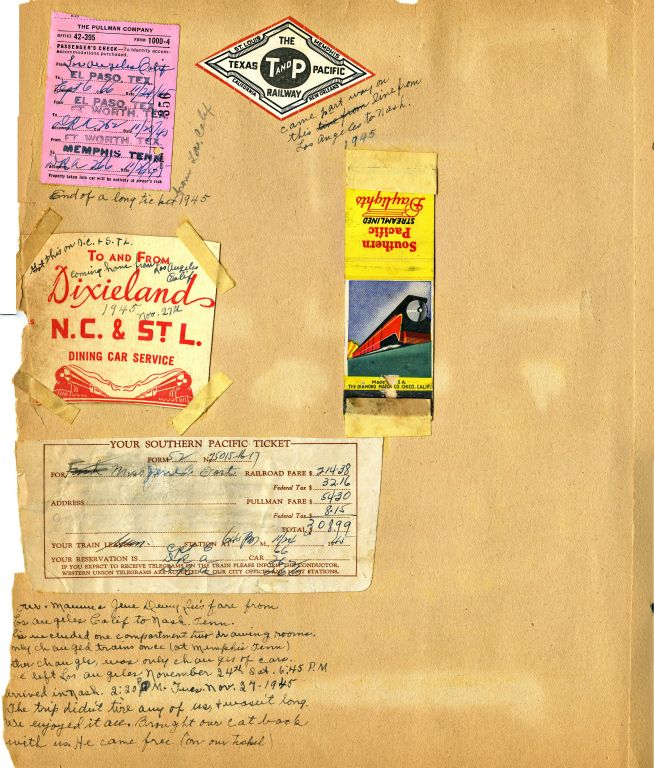 THE PULLMAN COMPANY
OFFICE 42-395 FORM 1009-4
PASSENGER'S CHECK—To identify accommodations purchased.
From Los Angeles Calif
To EL PASO, TEX.
6 66 11/24/45
From EL PASO, TEX.
To FT. WORTH, TEX.
11/25/45
From FT. WORTH, TEX.
To MEMPHIS, TENN
266
Property taken into car will be entirely at owner's risk
from Los, Calif
End of a long ticket 1945
ST. LOUIS THE MEMPHIS
TEXAS T AND P PACIFIC
RAILWAY
CALIFORNIA NEW ORLEANS
came part way on
this line from
Los Angeles to Nash.
1945
Southern
Pacific
STREAMLINED
Daylights
Made U.S.A.
THE DIAMOND MATCH CO. CHICO, CALIF.
Got this on N.C. & S.T.L.
TO AND FROM
coming home from Los Angeles
Calif
Dixieland
1945 Nov. 27th
N.C. & ST. L.
DINING CAR SERVICE
YOUR SOUTHERN PACIFIC TICKET
FORM 52 No 75015-16-17
FOR Miss Jene RAILROAD FARE $ 214.38
Federal Tax $ 32.16
ADDRESS PULLMAN FARE $ 54.30
Federal Tax $ 8.15
TOTAL $ 308.99
YOUR TRAIN LEAVES STATION AT 6:45 PM M. 11/24 1945
YOUR RESERVATION IS CAR 66
IF YOU EXPECT TO RECEIVE TELEGRAMS ON THE TRAIN PLEASE INFORM THE CONDUCTOR.
WESTERN UNION TELEGRAMS ARE ACCEPTED AT OUR CITY OFFICES AND MOST STATIONS.
Mamma Jene Dewy Lee's fare from
Los Angeles Calif to Nash. Tenn.
included one compartment two drawing rooms.
only changed trains once (at Memphis Tenn)
other changes, was only changes of cars.
left Los Angeles November 24th Sat. 6:45 P.M
arrived in Nash. 2:30 P.M. Tues. Nov. 27-1945
The trip didn't tire any of us & wasn't long
we enjoyed it all. Brought our cat back
with us. He came free (on our ticket)